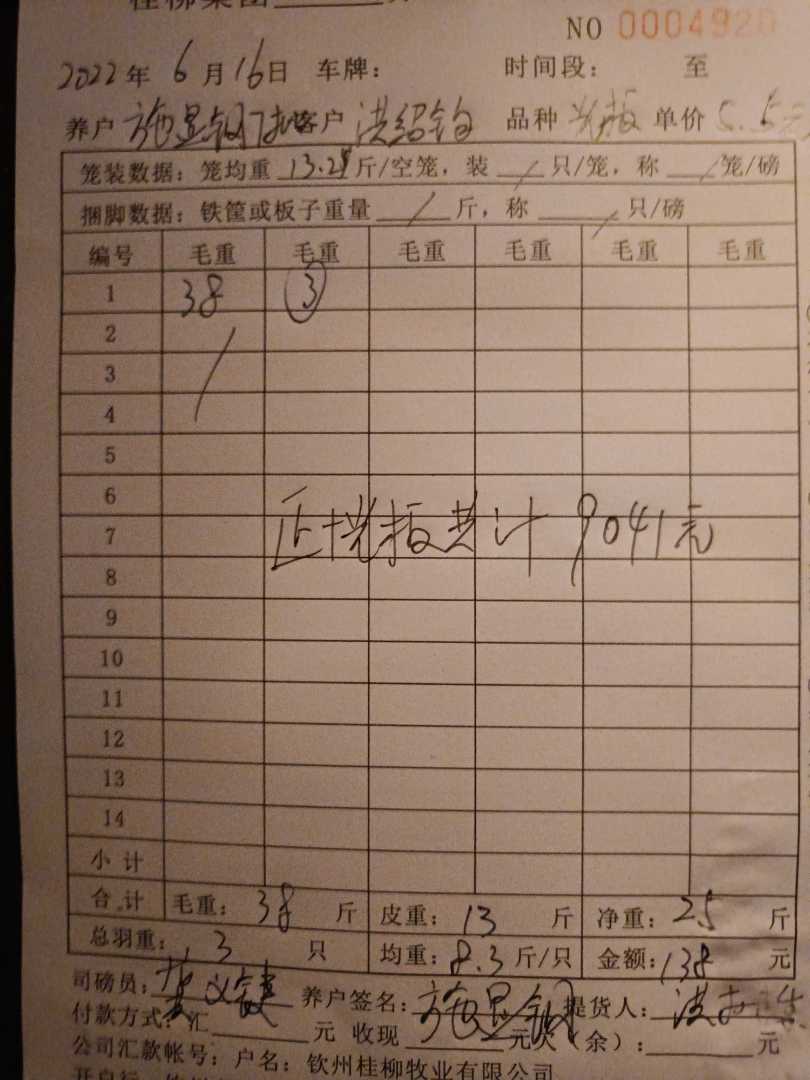 桂柳集团
NO 0004920
2022年6月16日 车牌： 时间段： 至
养户 施显钢 客户 洪绍钧 品种 单价 5.5元
笼装数据：笼均重 13.28 斤/空笼，装 / 只/笼，称 / 笼/磅
捆脚数据：铁筐或板子重量 / 斤，称 / 只/磅
编号 毛重 毛重 毛重 毛重 毛重 毛重
1 38 ③
2
3
4
5
6
正 板共计 9041元
7
8
9
10
11
12
13
14
小计
合计 毛重：38 斤 皮重：13 斤 净重：25 斤
总羽重：3 只 均重：8.3 斤/只 金额：138 元
司磅员： 养户签名：施显钢 提货人：洪
付款方式：汇 元 收现 元欠（余）： 元
公司汇款帐号：户名：钦州桂柳牧业有限公司
开户行